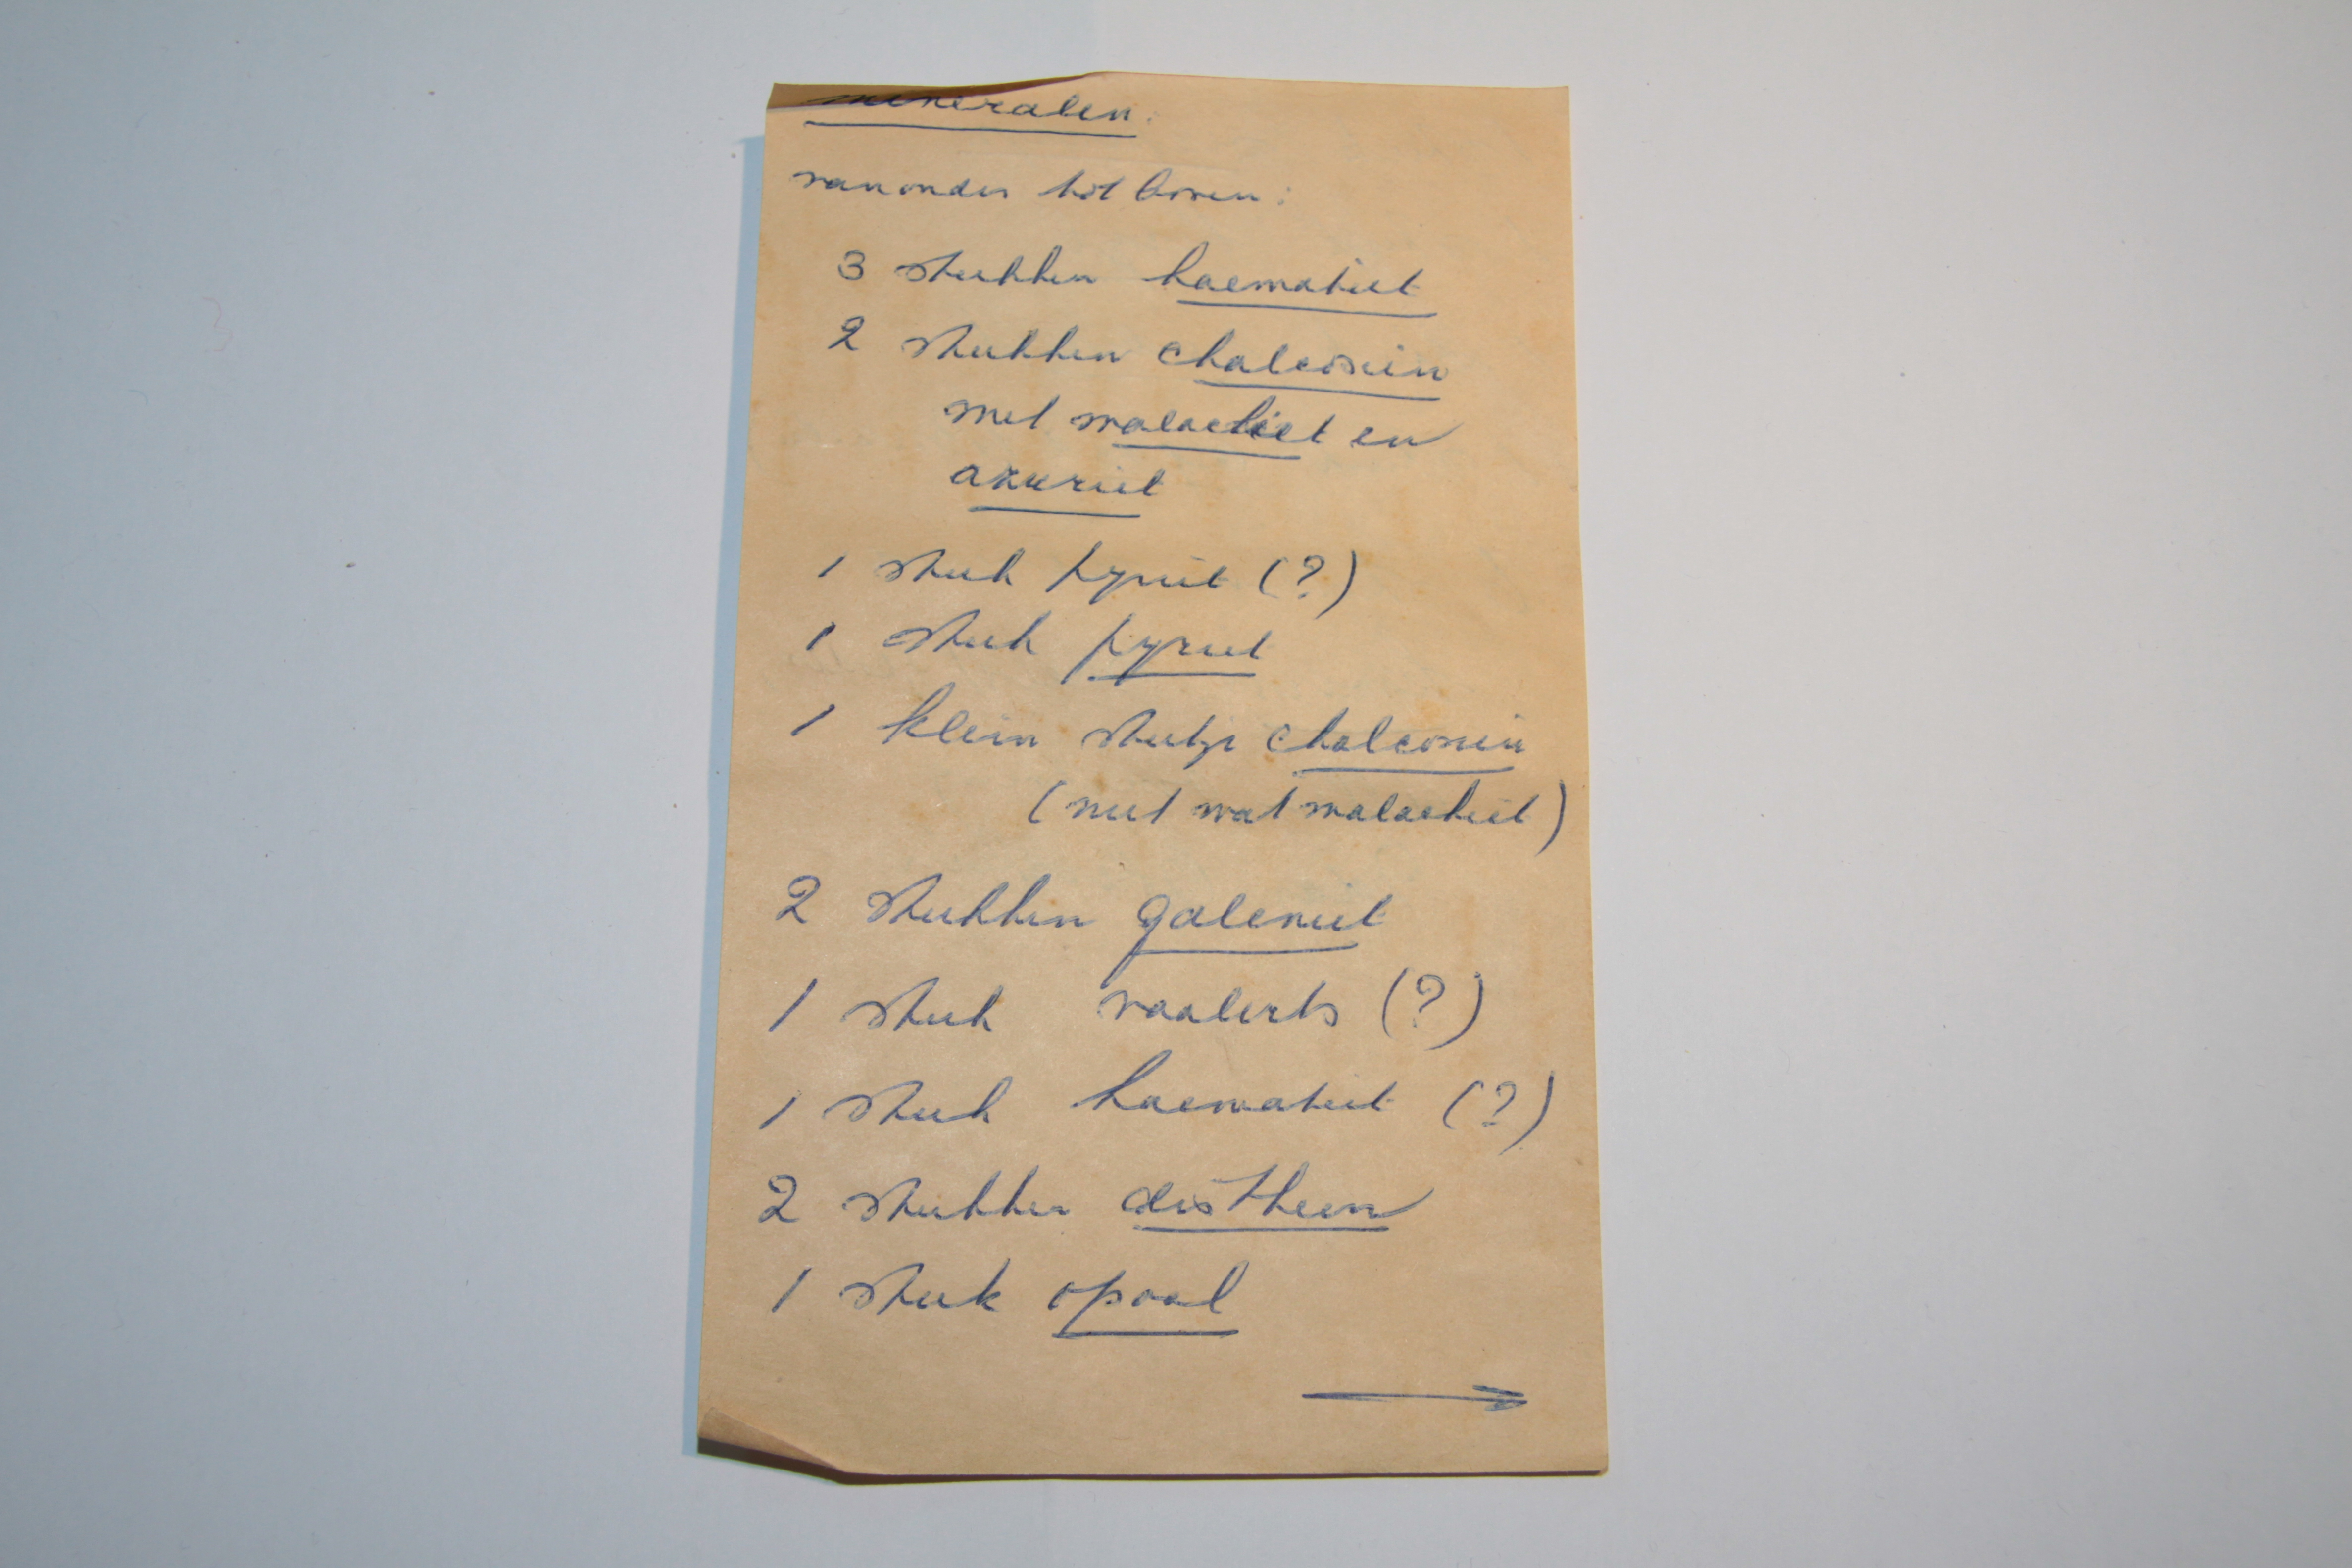 mineralen:
van onder tot boven:
3 stukken haematiet
2 stukken chalcosien
met malachiet en
azuriet
1 stuk pyriet (?)
1 stuk pyriet
1 klein stukje chalcosien
(met wat malachiet)
2 stukken galeniet
1 stuk vaalerts (?)
1 stuk haematiet (?)
2 stukken distheen
1 stuk opaal